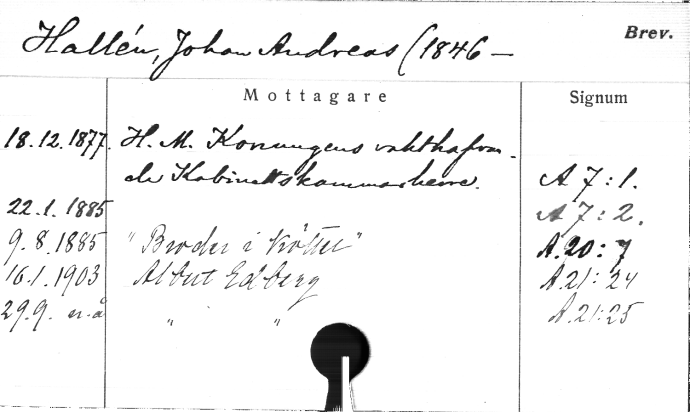 Hallén, Johan Andreas (1846 —
Brev.
Mottagare
Signum
18.12.1877. H. M. Konungens vakthafvan-
de Kabinettskammarherre. A 7:1.
22.1.1885 A 7:2.
9.8.1885 "Broder i köttet" A.20:7
16.1.1903 Albert Edberg A.21:24
29.9. u.å " " A.21:25